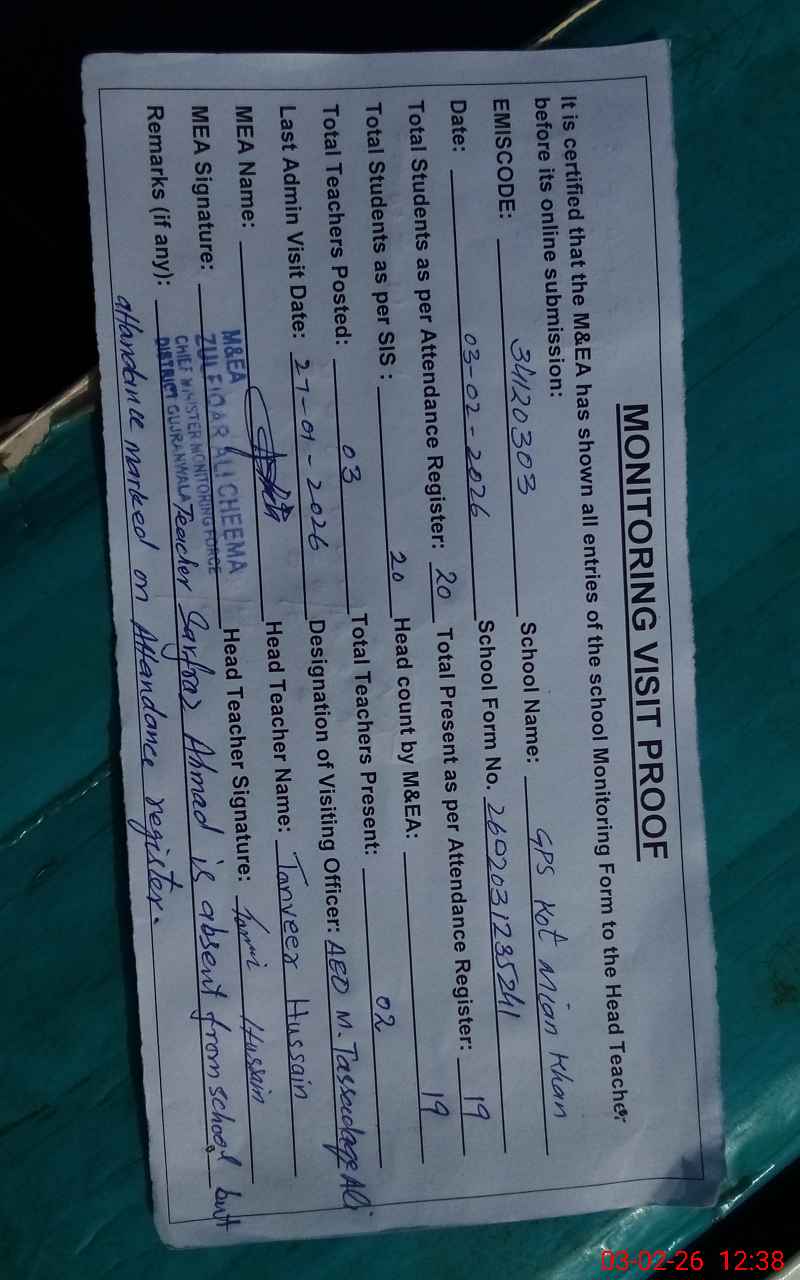 MONITORING VISIT PROOF
It is certified that the M&EA has shown all entries of the school Monitoring Form to the Head Teacher
before its online submission:
EMISCODE: 34120303 School Name: GPS Kot Mian Khan
Date: 03-02-2026 School Form No. 2692031235241
Total Students as per Attendance Register: 20 Total Present as per Attendance Register: 19
Total Students as per SIS : 20 Head count by M&EA: 19
Total Teachers Posted: 03 Total Teachers Present: 02
Last Admin Visit Date: 27-01-2026 Designation of Visiting Officer: AEO M. Tassadaqe Ali
MEA Name: Head Teacher Name: Tanveer Hussain
MEA Signature: Head Teacher Signature: Hussain
M&EA
ZULFIQAR ALI CHEEMA
CHIEF MINISTER MONITORING FORCE
DISTRICT GUJRANWALA
Remarks (if any): Teacher Sarfraz Ahmad is absent from school but
attandance marked on Attandance register.
03-02-26 12:38